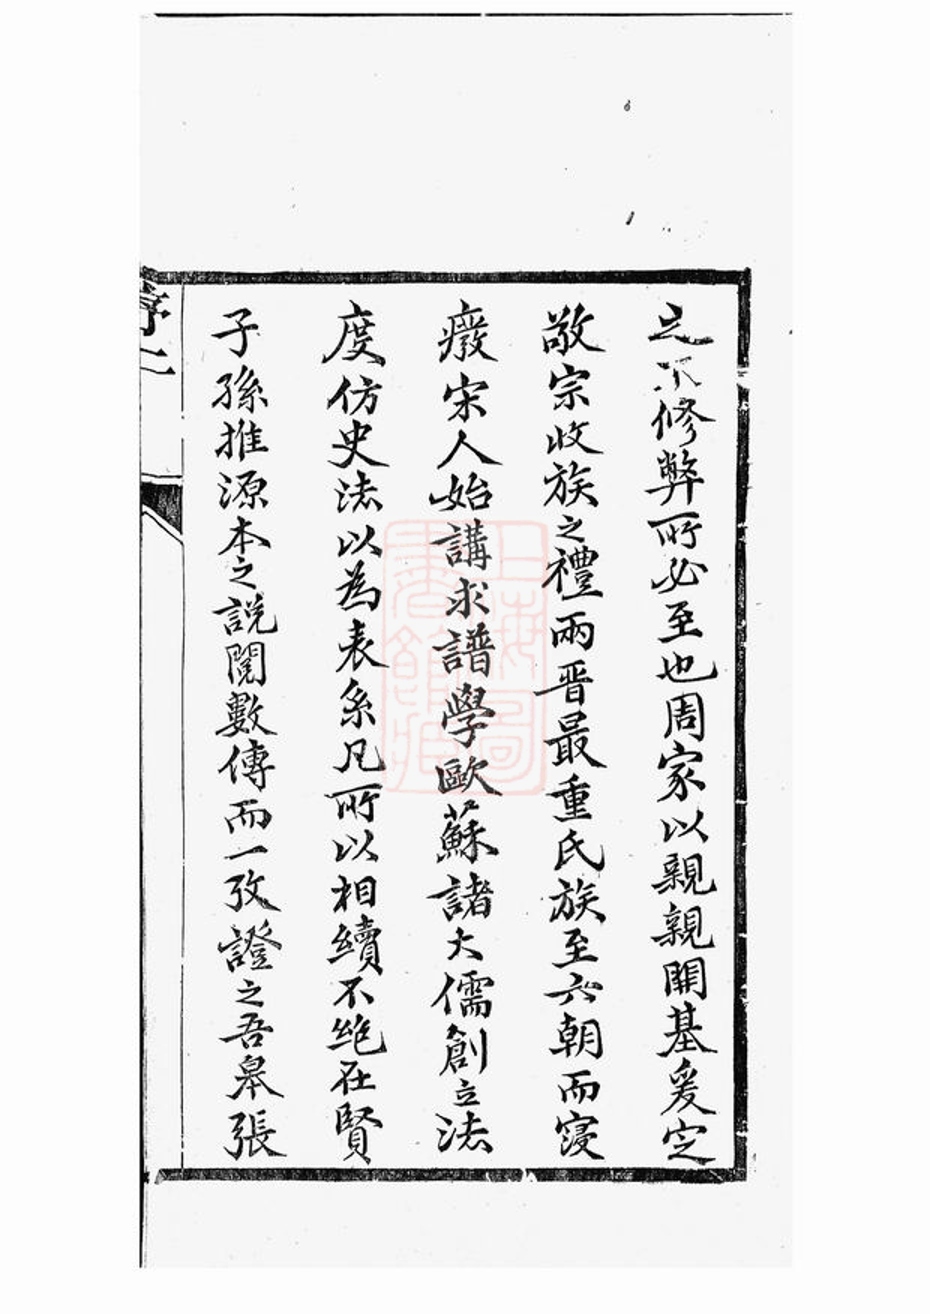 之不修弊所必至也周家以親親開基爰定
敬宗收族之禮兩晋最重氏族至六朝而寖
癈宋人始講求譜學歐蘇諸大儒創立法
度仿史法以為表系凡所以相續不絶在賢
子孫推源本之説閲數傳而一攷證之吾皋張
序二
上海圖書館藏